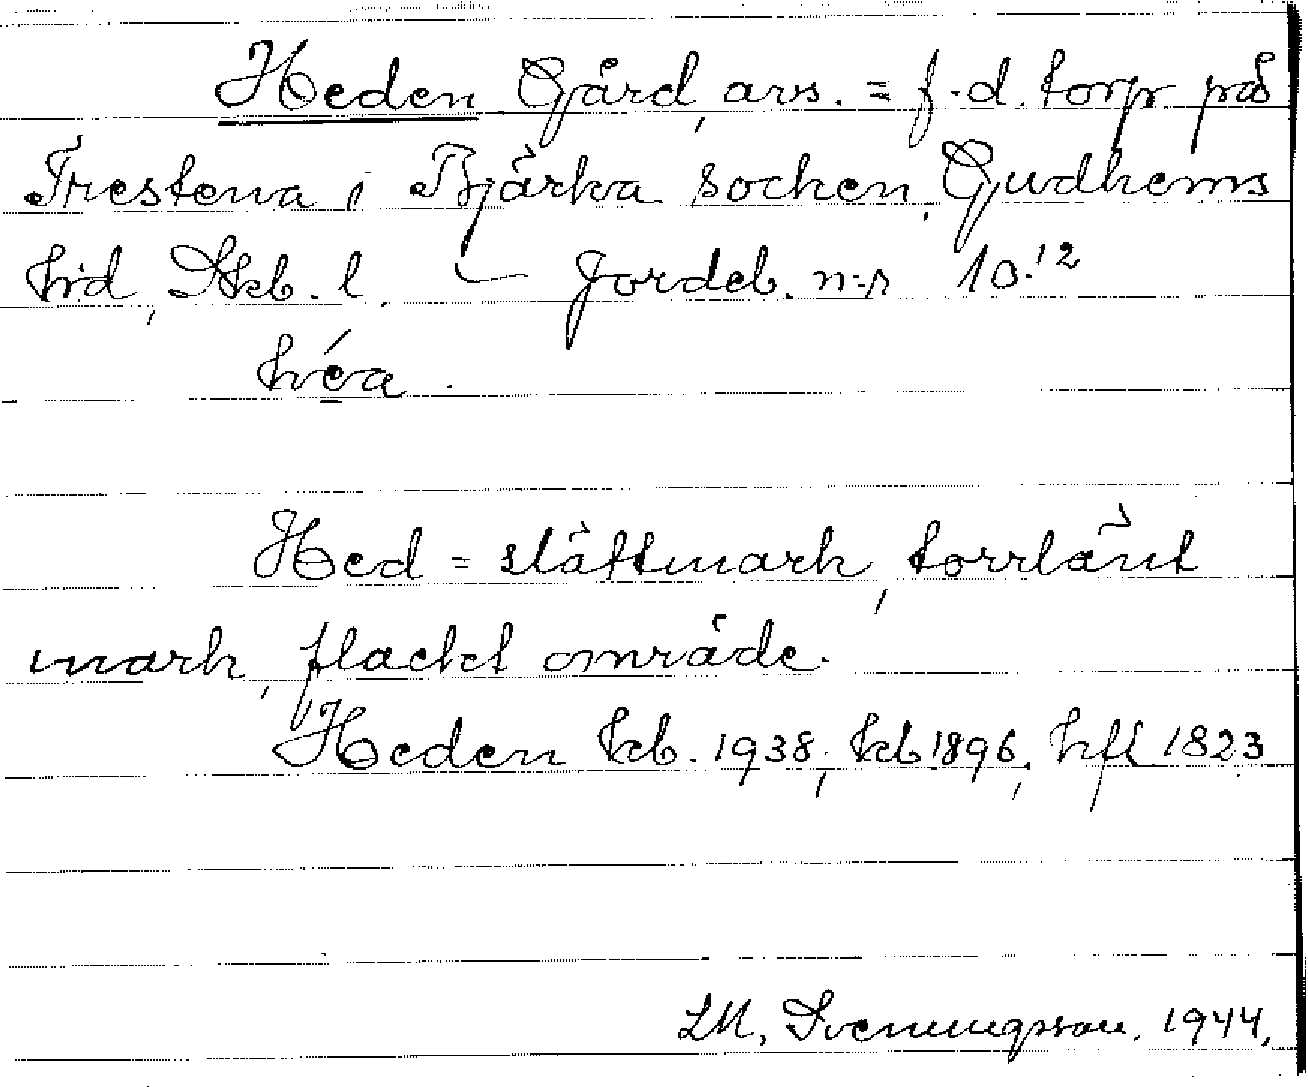 Heden Gård, avs. = f.d. torp på
Trestena i Bjärka socken, Gudhems
hrd, Skb. l. — Jordeb. n:r 10.¹²
héa.
Hed = slättmark, torrlänt
mark, flackt område.
Heden kb. 1938; kb 1896; hfl 1823
LM, Svenningsson. 1944.